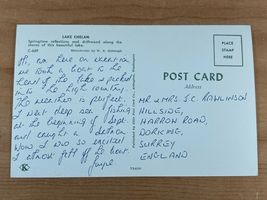 LAKE CHELAN
Springtime reflections and driftwood along the
shores of this beautiful lake.
POST CARD
Address
PLACE
STAMP
HERE
Hi, no here on vacation
we took a boat to the
head of the lake & packed
into the high country.
The weather is perfect.
I went deep sea fishing
at the beginning of Sept
and caught a salmon
Wow I was so excited
I almost fell off the boat.
Mr & Mrs S.C. RAWLINSON
HILLSIDE,
HARROW ROAD,
DORKING,
SURREY
ENGLAND
K